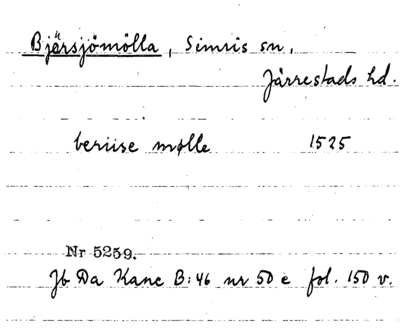 Bjärsjömölla, Simris sn,
Järrestads hd.
beriise mølle 1525
Nr 5259.
Jb Da Kanc B:46 nr 50 e fol. 150 v.